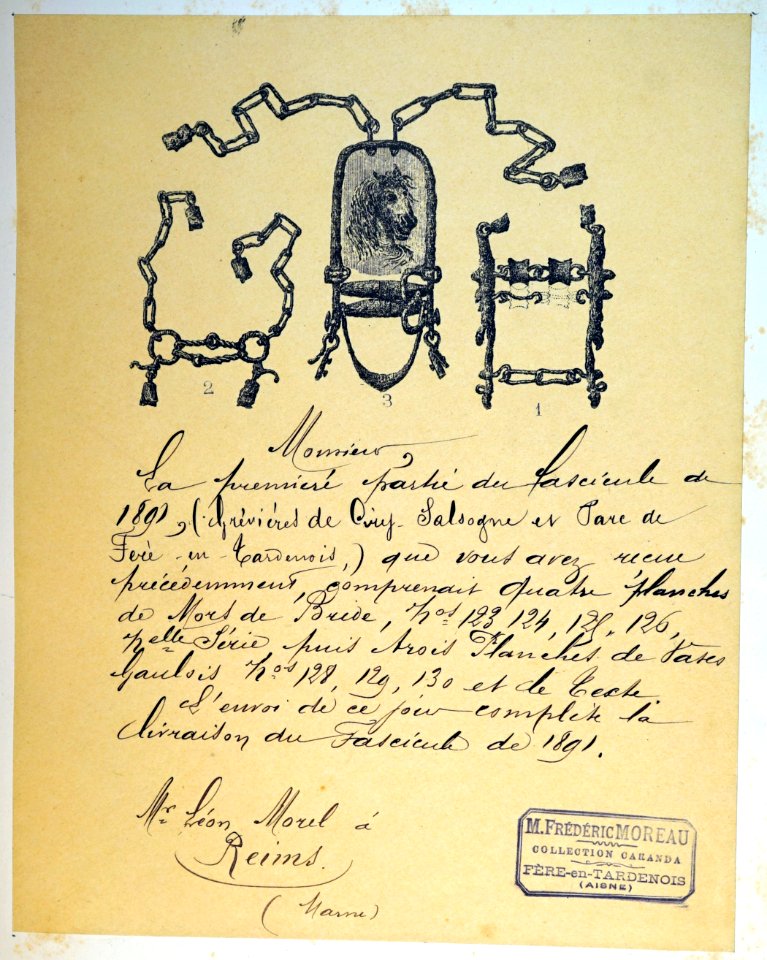 2
3
1
Monsieur,
La première partie du fascicule de
1891, (Grévières de Ciry-Salsogne et Parc de
Fère-en-Tardenois,) que vous avez reçue
précédemment, comprenait quatre planches
de Mors de Bride, Nos 123, 124, 125, 126,
Nelle Série, puis trois Planches de Vases
Gaulois Nos 128, 129, 130 et le Texte.
L'envoi de ce jour complète la
livraison du Fascicule de 1891.
Mr Léon Morel à
Reims.
(Marne)
M. FRÉDÉRIC MOREAU
COLLECTION CARANDA
FÈRE-en-TARDENOIS
(AISNE)